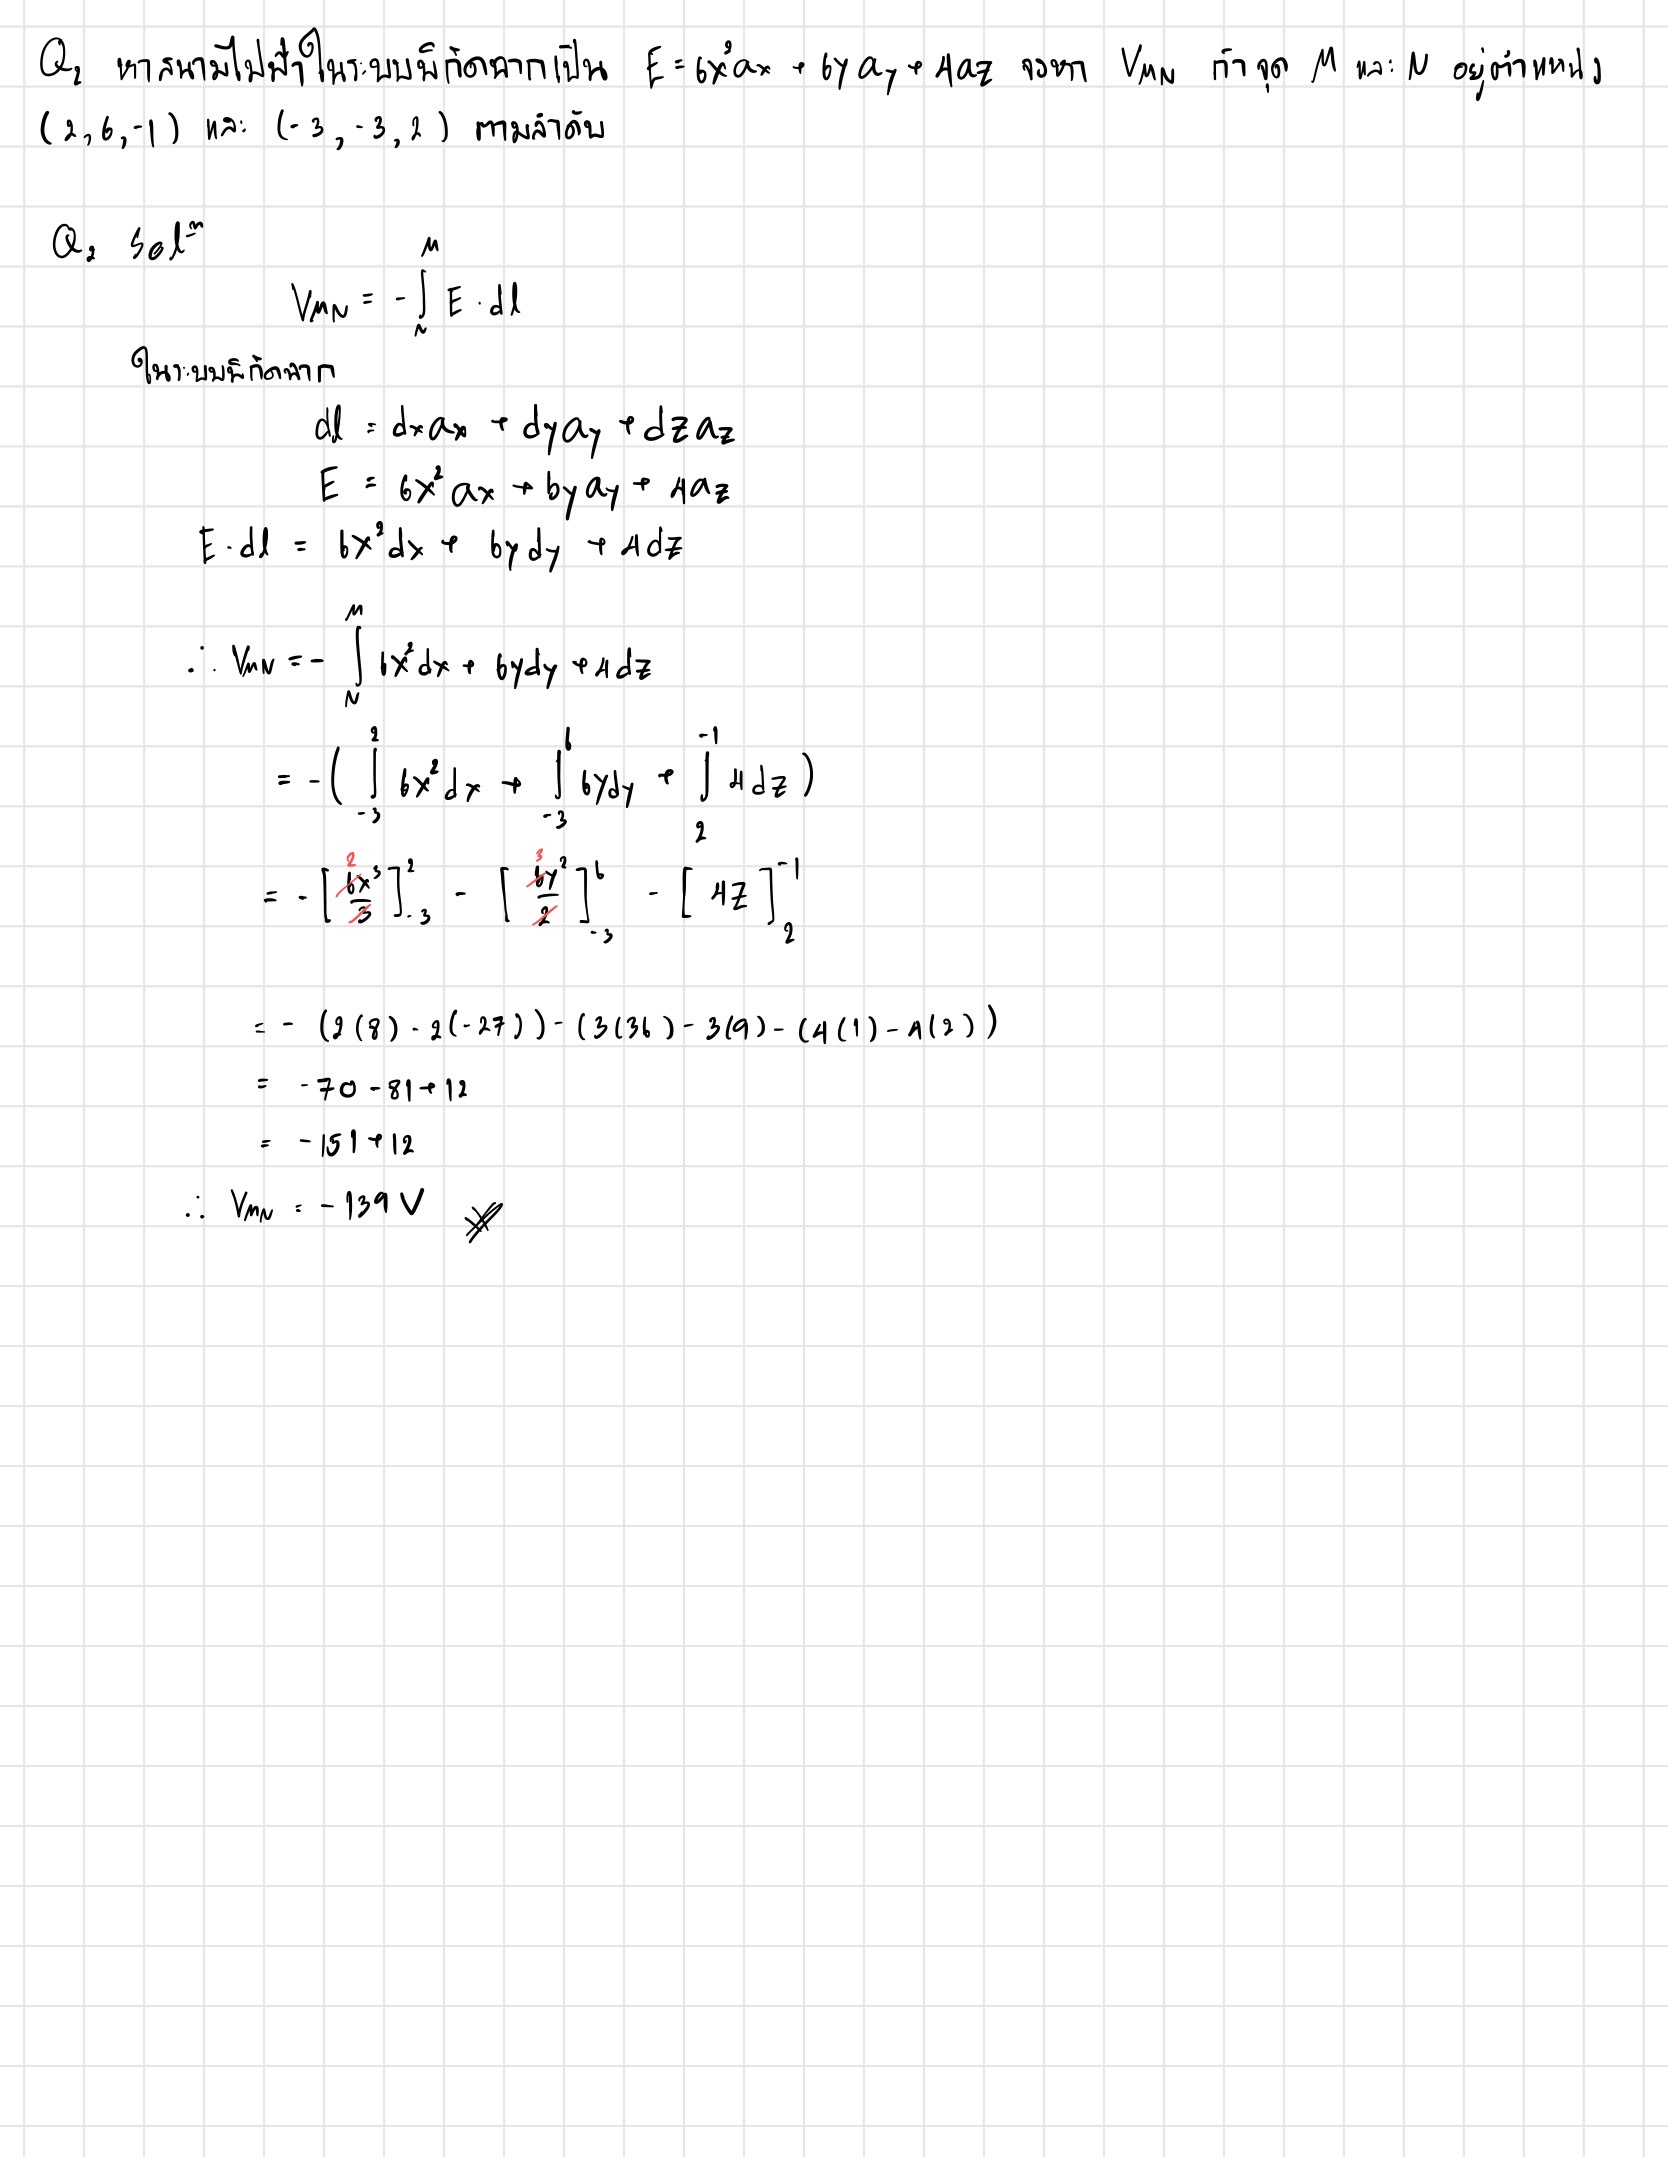 Q₂ หาสนามไฟฟ้าในระบบพิกัดฉากเป็น E = 6x²ax + 6y ay + 4az จงหา V_MN ถ้าจุด M และ N อยู่ตำแหน่ง
(2,6,-1) และ (-3,-3,2) ตามลำดับ
Q₂ Solⁿ
V_MN = -∫_N^M E · dl
ในระบบพิกัดฉาก
dl = dxax + dyay + dzaz
E = 6x²ax + 6yay + 4az
E · dl = 6x²dx + 6ydy + 4dz
∴ V_MN = - ∫_N^M 6x²dx + 6ydy + 4dz
= -( ∫_-3^2 6x²dx + ∫_-3^6 6ydy + ∫_2^-1 4dz )
= - [ 2 6x³/3 ]_-3^2 - [ 3 6y²/2 ]_-3^6 - [ 4z ]_2^-1
= - (2(8) - 2(-27)) - (3(36) - 3(9) - (4(1) - 4(2))
= -70 - 81 + 12
= -151 + 12
∴ V_MN = -139 V